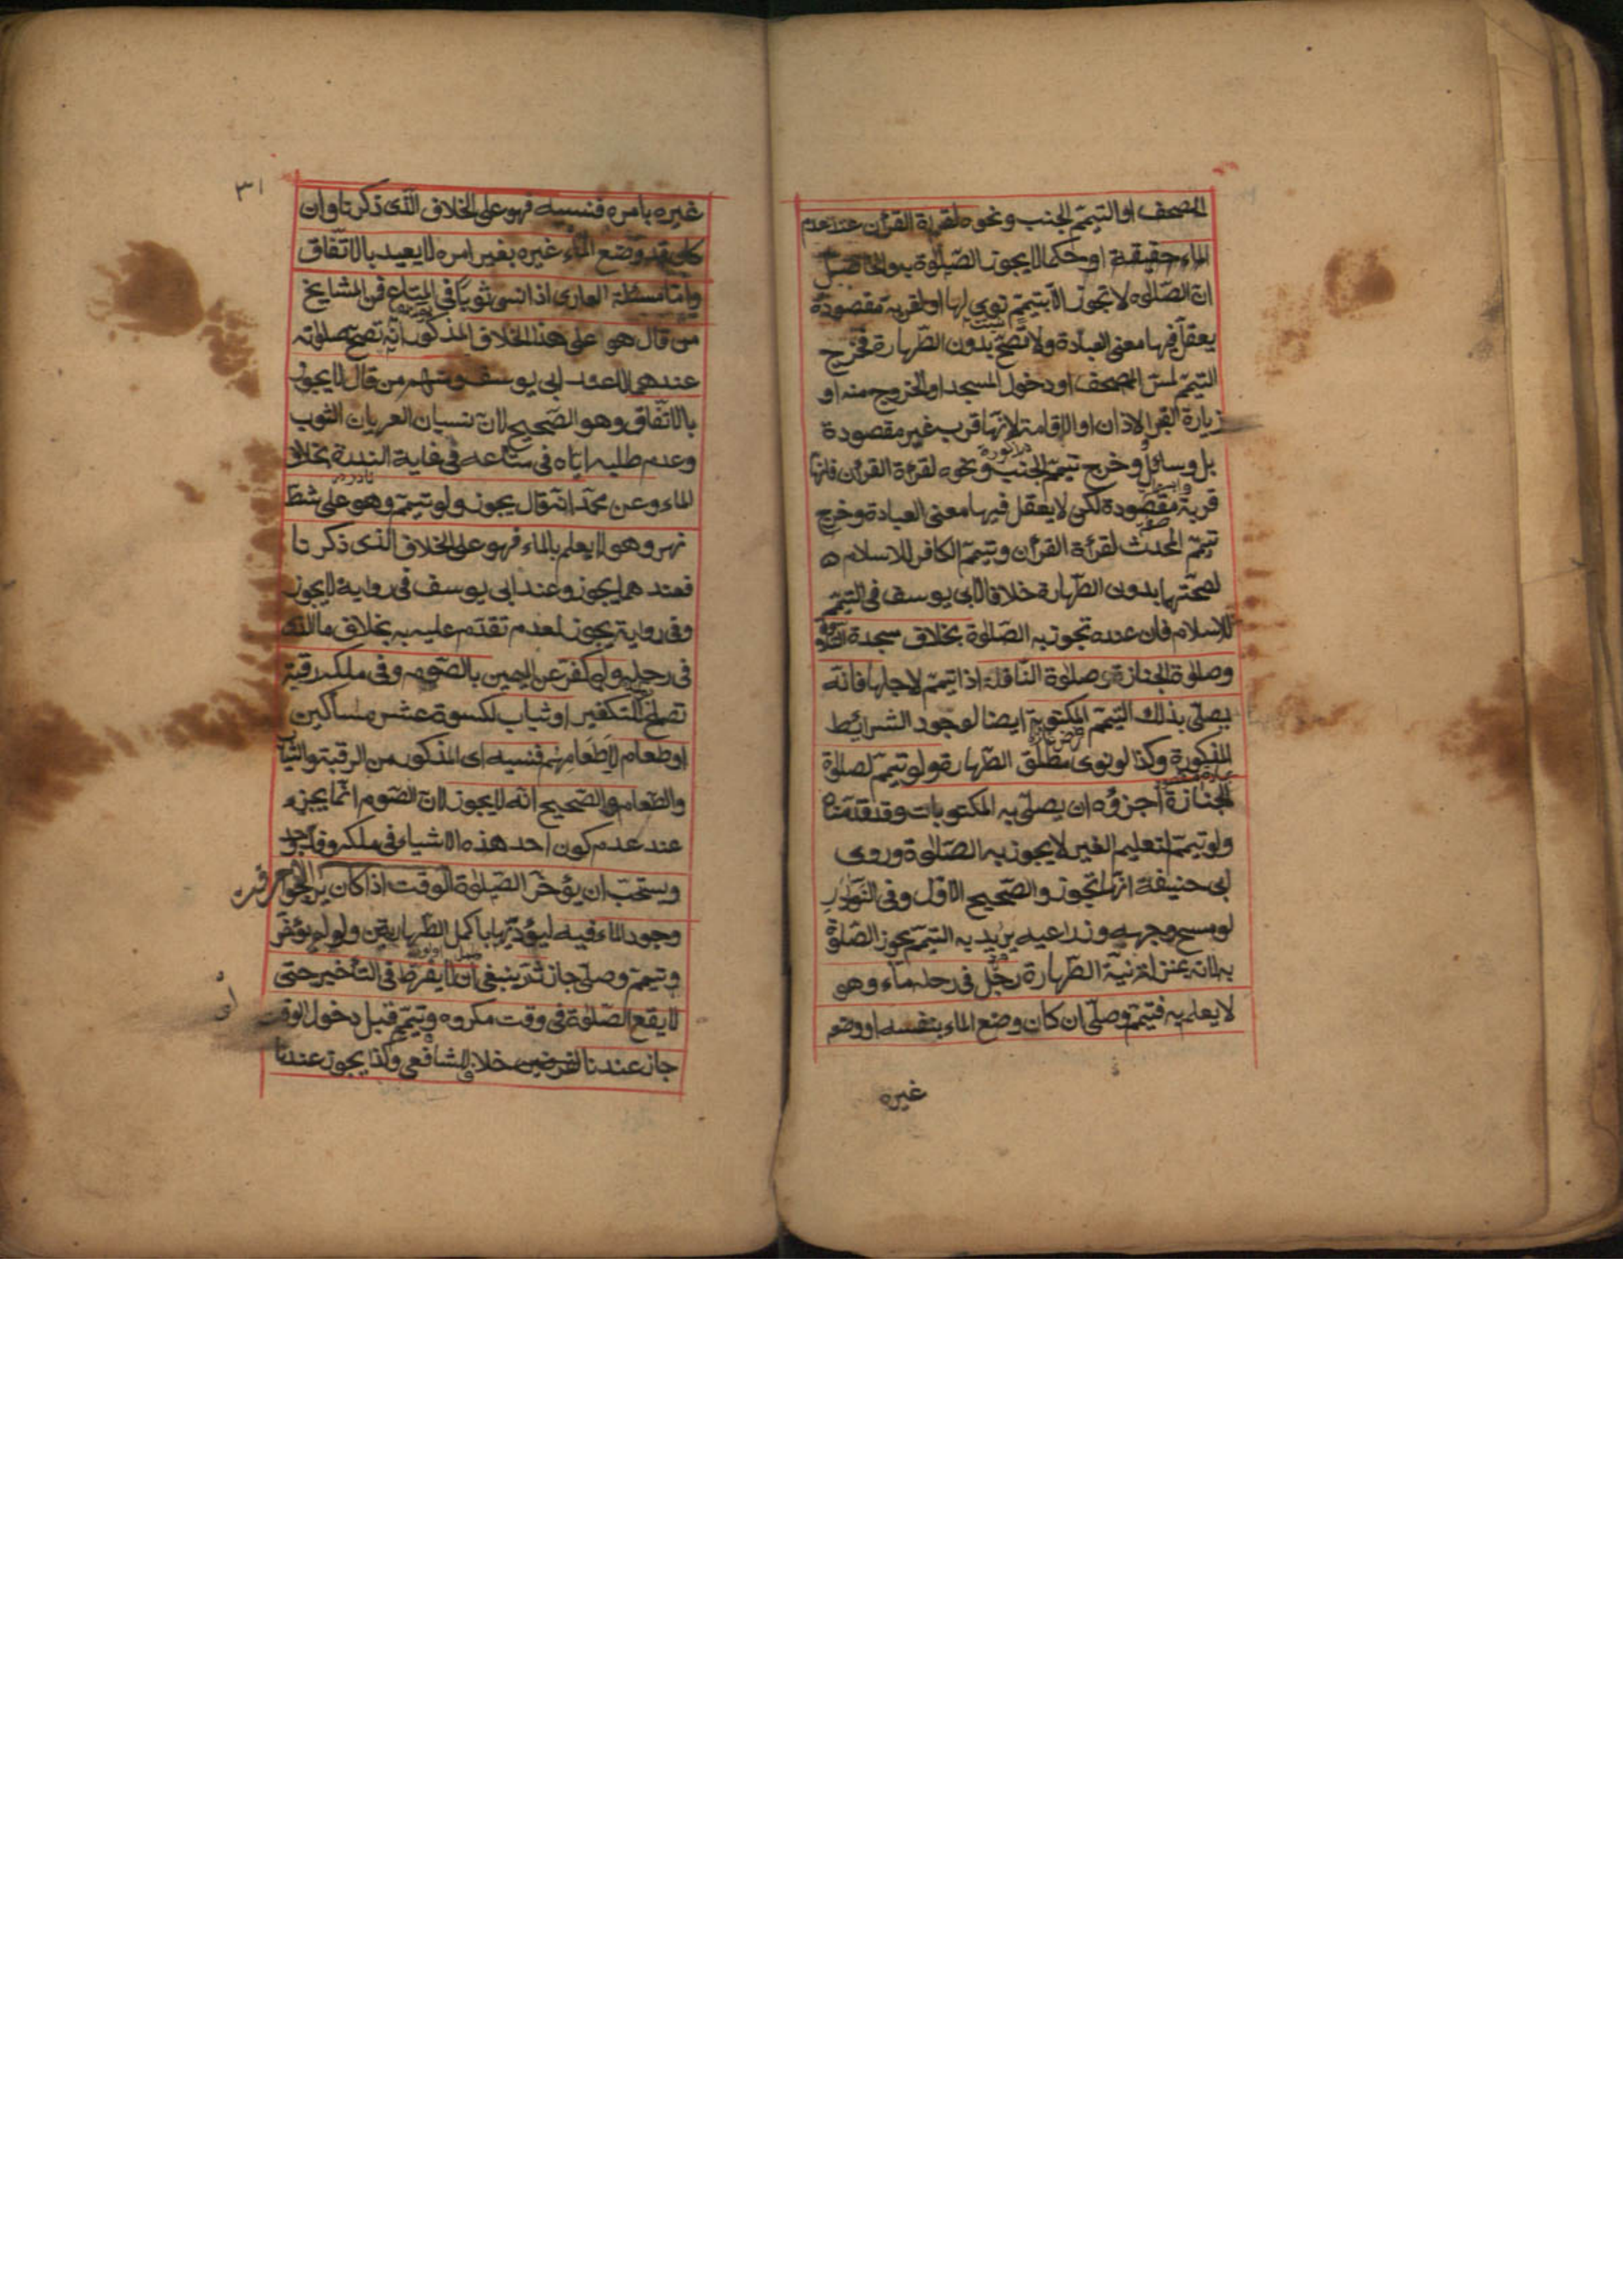 المصحف او التيمّم لجنب ونحوه لقرأة القرآن عند عدم
الماء حقيقة او حكما لا يجوز الصّلوة به والحاصل
انّ الصّلوة لا تجوز الّا بتيمّم نوى لها او لقربة مقصودة
يعقل فيها معنى العبادة ولا تصحّ بدون الطّهارة فخرج
التيمّم لمسّ المصحف او دخول المسجد او الخروج منه او
زيارة القبر او الاذان او الاقامة لانّها قرب غير مقصودة
بل وسائل وخرج تيمّم الجنب ونحوه لقرأة القرآن فانّها
قربة مقصودة لكن لا يعقل فيها معنى العبادة وخرج
تيمّم المحدث لقرأة القرآن وتيمّم الكافر للاسلام
لصحّتها بدون الطّهارة خلافا لابى يوسف فى التيمّم
للاسلام فان عنده تجوز به الصّلوة بخلاف سجدة التلاوة
وصلوة الجنازة وصلوة النافلة اذا تيمّم لاجلها فانّه
يصلّى بذلك التيمّم المكتوبة ايضا لوجود الشرائط
المذكورة وكذا لو نوى مطلق الطّهارة ولو تيمّم لصلوة
الجنازة أجزؤه ان يصلّى به المكتوبات وقد قدّمناه
ولو تيمّم لتعليم الغير لا يجوز به الصّلوة وروى
ابى حنيفة انّها تجوز والصّحيح الاوّل وفى النّوادر
لو مسح وجهه وذراعيه يريد به التيمّم يجوز الصّلوة
به لانه بمنزلة نيّة الطّهارة رجل فى رحله ماء وهو
لا يعلم به فتيمّم وصلّى ان كان وضع الماء بنفسه او وضع
غيره
٣١
غيره بامره فنسيه فهو على الخلاف الّذى ذكرنا وان
كان قد وضع الماء غيره بغير امره لا يعيد بالاتّفاق
وامّا مسئلة العارى اذا نسى ثوبا فى المتاع فمن المشايخ
من قال هو على هذا الخلاف المذكور انّه تصحّ صلوته
عندهما لا عند ابى يوسف ومنهم من قال لا يجوز
بالاتّفاق وهو الصّحيح لانّ نسيان العريان الثوب
وعدم طلبه ايّاه فى متاعه فى غاية الندرة بخلاف
الماء وعن محمّد انّه قال يجوز ولو تيمّم وهو على شطّ
نهر وهو لا يعلم بالماء فهو على الخلاف الذى ذكرنا
فعندهما يجوز وعند ابى يوسف فى رواية لا يجوز
وفى رواية يجوز لعدم تقدّم عليه به بخلاف ما لو
فى رحله ولو كفّر عن اليمين بالصّوم وفى ملكه رقبة
تصلح للتكفير او ثياب لكسوة عشر مساكين
او طعام لاطعامهم فنسيه اى المذكور من الرقبة والثياب
والطّعام والصّحيح انّه لا يجوز لانّ الصّوم انّما يجزء
عند عدم كون احد هذه الاشياء فى ملكه
ويستحبّ ان يؤخّر الصّلوة الوقت اذا كان يرجو
وجود الماء فيه ليؤدّيها باكمل الطّهارتين ولو لم يؤخّر
وتيمّم وصلّى جاز ثمّ ينبغى ان لا يفرط فى التأخير حتى
لا يقع الصّلوة فى وقت مكروه وتيمّم قبل دخول الوقت
جاز عندنا خلاف الشافعى وكذا يجوز عندنا